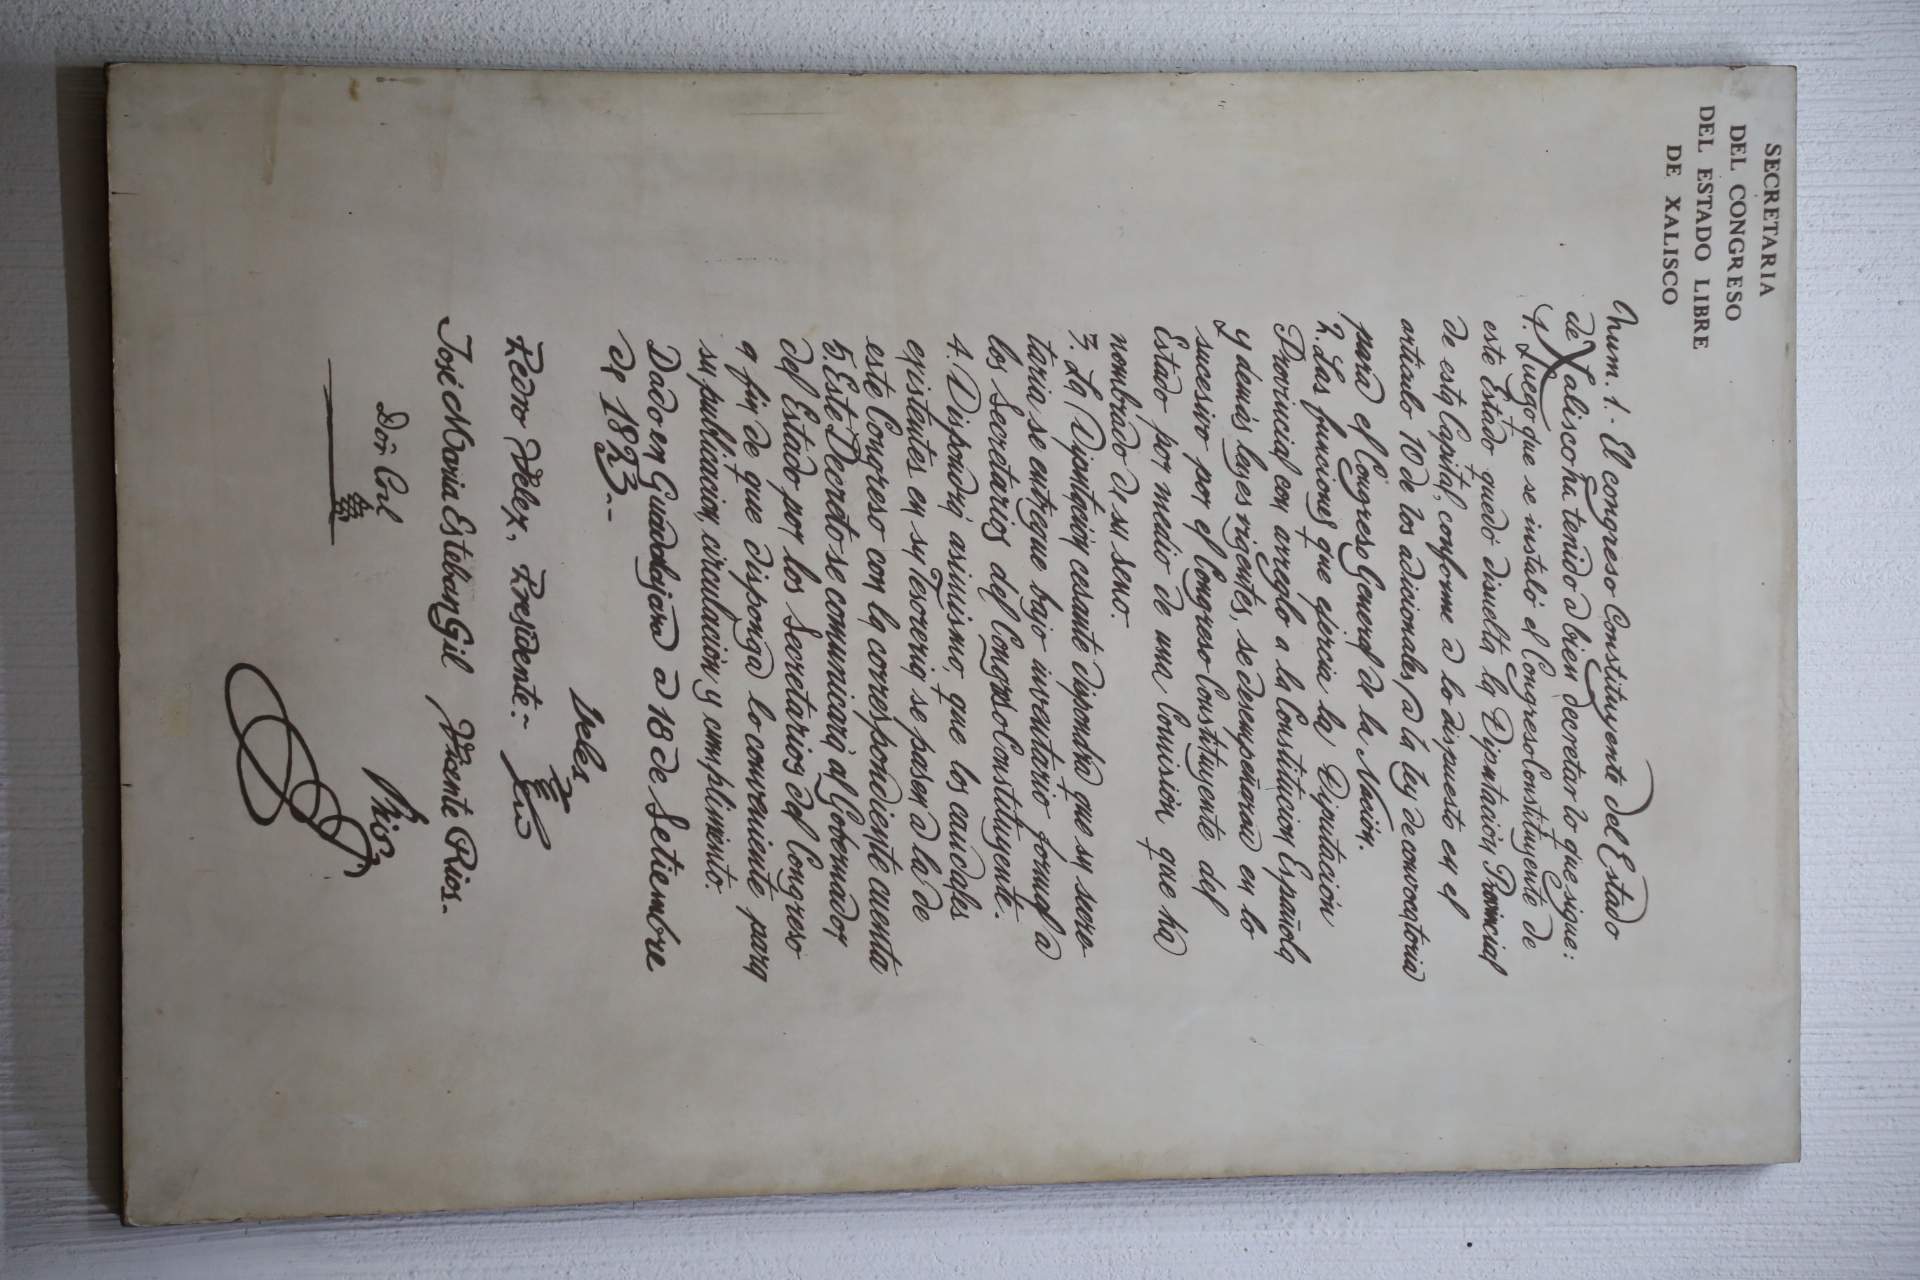 SECRETARIA
DEL CONGRESO
DEL ESTADO LIBRE
DE XALISCO
Num. 1.- El congreso Constituyente del Estado
de Xalisco ha tenido a bien decretar lo que sigue:
1. Luego que se instaló el Congreso Constituyente de
este Estado quedó disuelta la Diputación Provincial
de esta Capital, conforme a lo dispuesto en el
articulo 10 de los adicionales a la ley de convocatoria
para el Congreso General de la Nación.
2. Las funciones que ejercia la Diputación
Provincial con arreglo a la Constitucion Española
y demás leyes vigentes, se desempeñarán en lo
sucesivo por el Congreso Constituyente del
Estado por medio de una Comisión que ha
nombrado de su seno.
3. La Diputación cesante dispondrá que su secre-
taria se entregue bajo inventario formal a
los Secretarios del Congreso Constituyente.
4. Dispondrá asimismo, que los caudales
existentes en su Tesoreria se pasen a la de
este Congreso con la correspondiente cuenta
5. Este Decreto se comunicará al Gobernador
del Estado por los Secretarios del Congreso
a fin de que disponga lo conveniente para
su publicacion, circulación y cumplimiento.
Dado en Guadalajara a 18 de Setiembre
de 1823.--
Veles
Pedro Velez, Presidente.-
José Maria Esteban Gil Vicente Rios.-
Rios